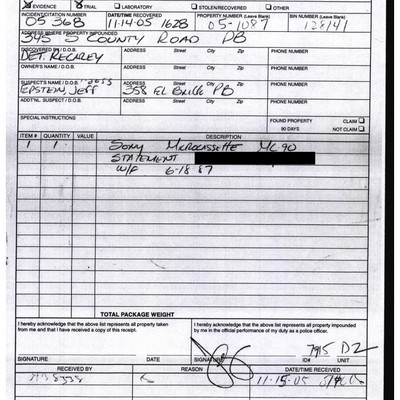 EVIDENCE TRIAL LABORATORY STOLEN/RECOVERED OTHER
INCIDENT/CITATION NUMBER DATE/TIME RECOVERED PROPERTY NUMBER (Leave Blank) BIN NUMBER (Leave Blank)
05 368 11-14-05 1628 05-1087
ADDRESS WHERE PROPERTY IMPOUNDED
345 S COUNTY ROAD PB
DISCOVERED BY ADDRESS Street City Zip PHONE NUMBER
DET. RECAREY
OWNER'S NAME / D.O.B. ADDRESS Street City Zip PHONE NUMBER
SUSPECT'S NAME / D.O.B. ADDRESS Street City Zip PHONE NUMBER
EPSTEIN, JEFF 358 EL BRILLO PB
ADDT'NL. SUSPECT / D.O.B. ADDRESS Street City Zip PHONE NUMBER
SPECIAL INSTRUCTIONS FOUND PROPERTY CLAIM
90 DAYS NOT CLAIM
ITEM # QUANTITY VALUE DESCRIPTION
1 1 SONY MICROCASSETTE MC 90
STATEMENT
W/F 6-18 87
TOTAL PACKAGE WEIGHT
I hereby acknowledge that the above list represents all property taken from me and that I have received a copy of this receipt.
I hereby acknowledge that the above list represents all property impounded by me in the official performance of my duty as a police officer.
7915 D2
SIGNATURE DATE SIGNATURE ID# UNIT
RECEIVED BY DATE DATE/TIME RECEIVED
11-15-05